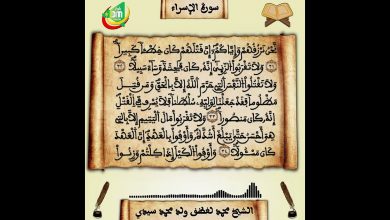 سورة الإسراء
نحن نرزقهم وإياكم إن قتلهم كان خطئا كبيرا
ولا تقربوا الزنى إنه كان فاحشة وساء سبيلا
ولا تقتلوا النفس التي حرم الله إلا بالحق ومن قتل
مظلوما فقد جعلنا لوليه سلطنا فلا يسرف في القتل
إنه كان منصورا ولا تقربوا مال اليتيم إلا بالتي
هي أحسن حتى يبلغ أشده وأوفوا بالعهد إن العهد
كان مسئولا وأوفوا الكيل إذا كلتم وزنوا
الشيخ محمد لغظف ولد محمد سيدي